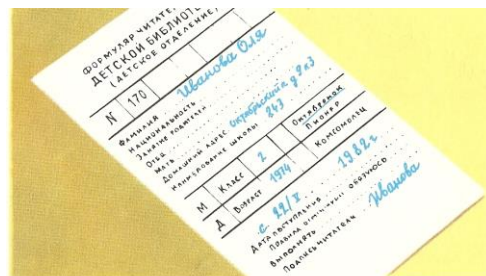 ФОРМУЛЯР ЧИТАТЕ
ДЕТСКОЙ БИБЛИОТЕ
(ДЕТСКОЕ ОТДЕЛЕНИЕ)
N 170
ФАМИЛИЯ Иванова Оля
НАЦИОНАЛЬНОСТЬ
ЗАНЯТИЕ РОДИТЕЛЕЙ:
ОТЕЦ
МАТЬ
ДОМАШНИЙ АДРЕС Октябрьская д 9 к3
НАИМЕНОВАНИЕ ШКОЛЫ 843
М КЛАСС 2 Октябренок
ПИОНЕР
Д ВОЗРАСТ 1974 КОМСОМОЛЕЦ
с 22/X 1982 г
ДАТА ПОСТУПЛЕНИЯ
ПРАВИЛА ОБЯЗУЮСЬ
ВЫПОЛНЯТЬ
ПОДПИСЬ ЧИТАТЕЛЯ Иванова